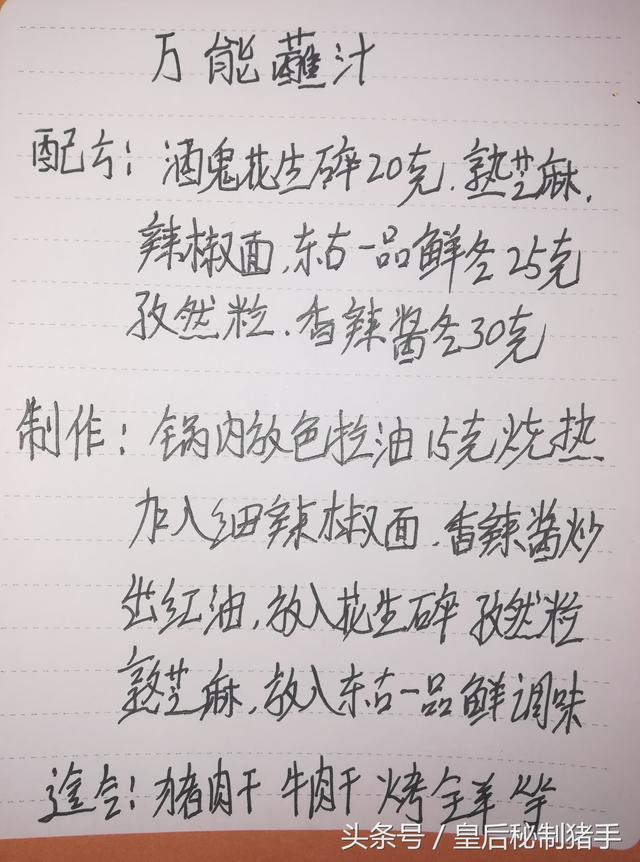 万能蘸汁
配方：酒鬼花生碎20克.熟芝麻.
辣椒面.东古一品鲜各25克
孜然粒.香辣酱各30克
制作：锅内放色拉油15克烧热
加入细辣椒面.香辣酱炒
出红油,放入花生碎 孜然粒
熟芝麻,放入东古一品鲜调味
适合：猪肉干 牛肉干 烤全羊等
头条号 / 皇后秘制猪手